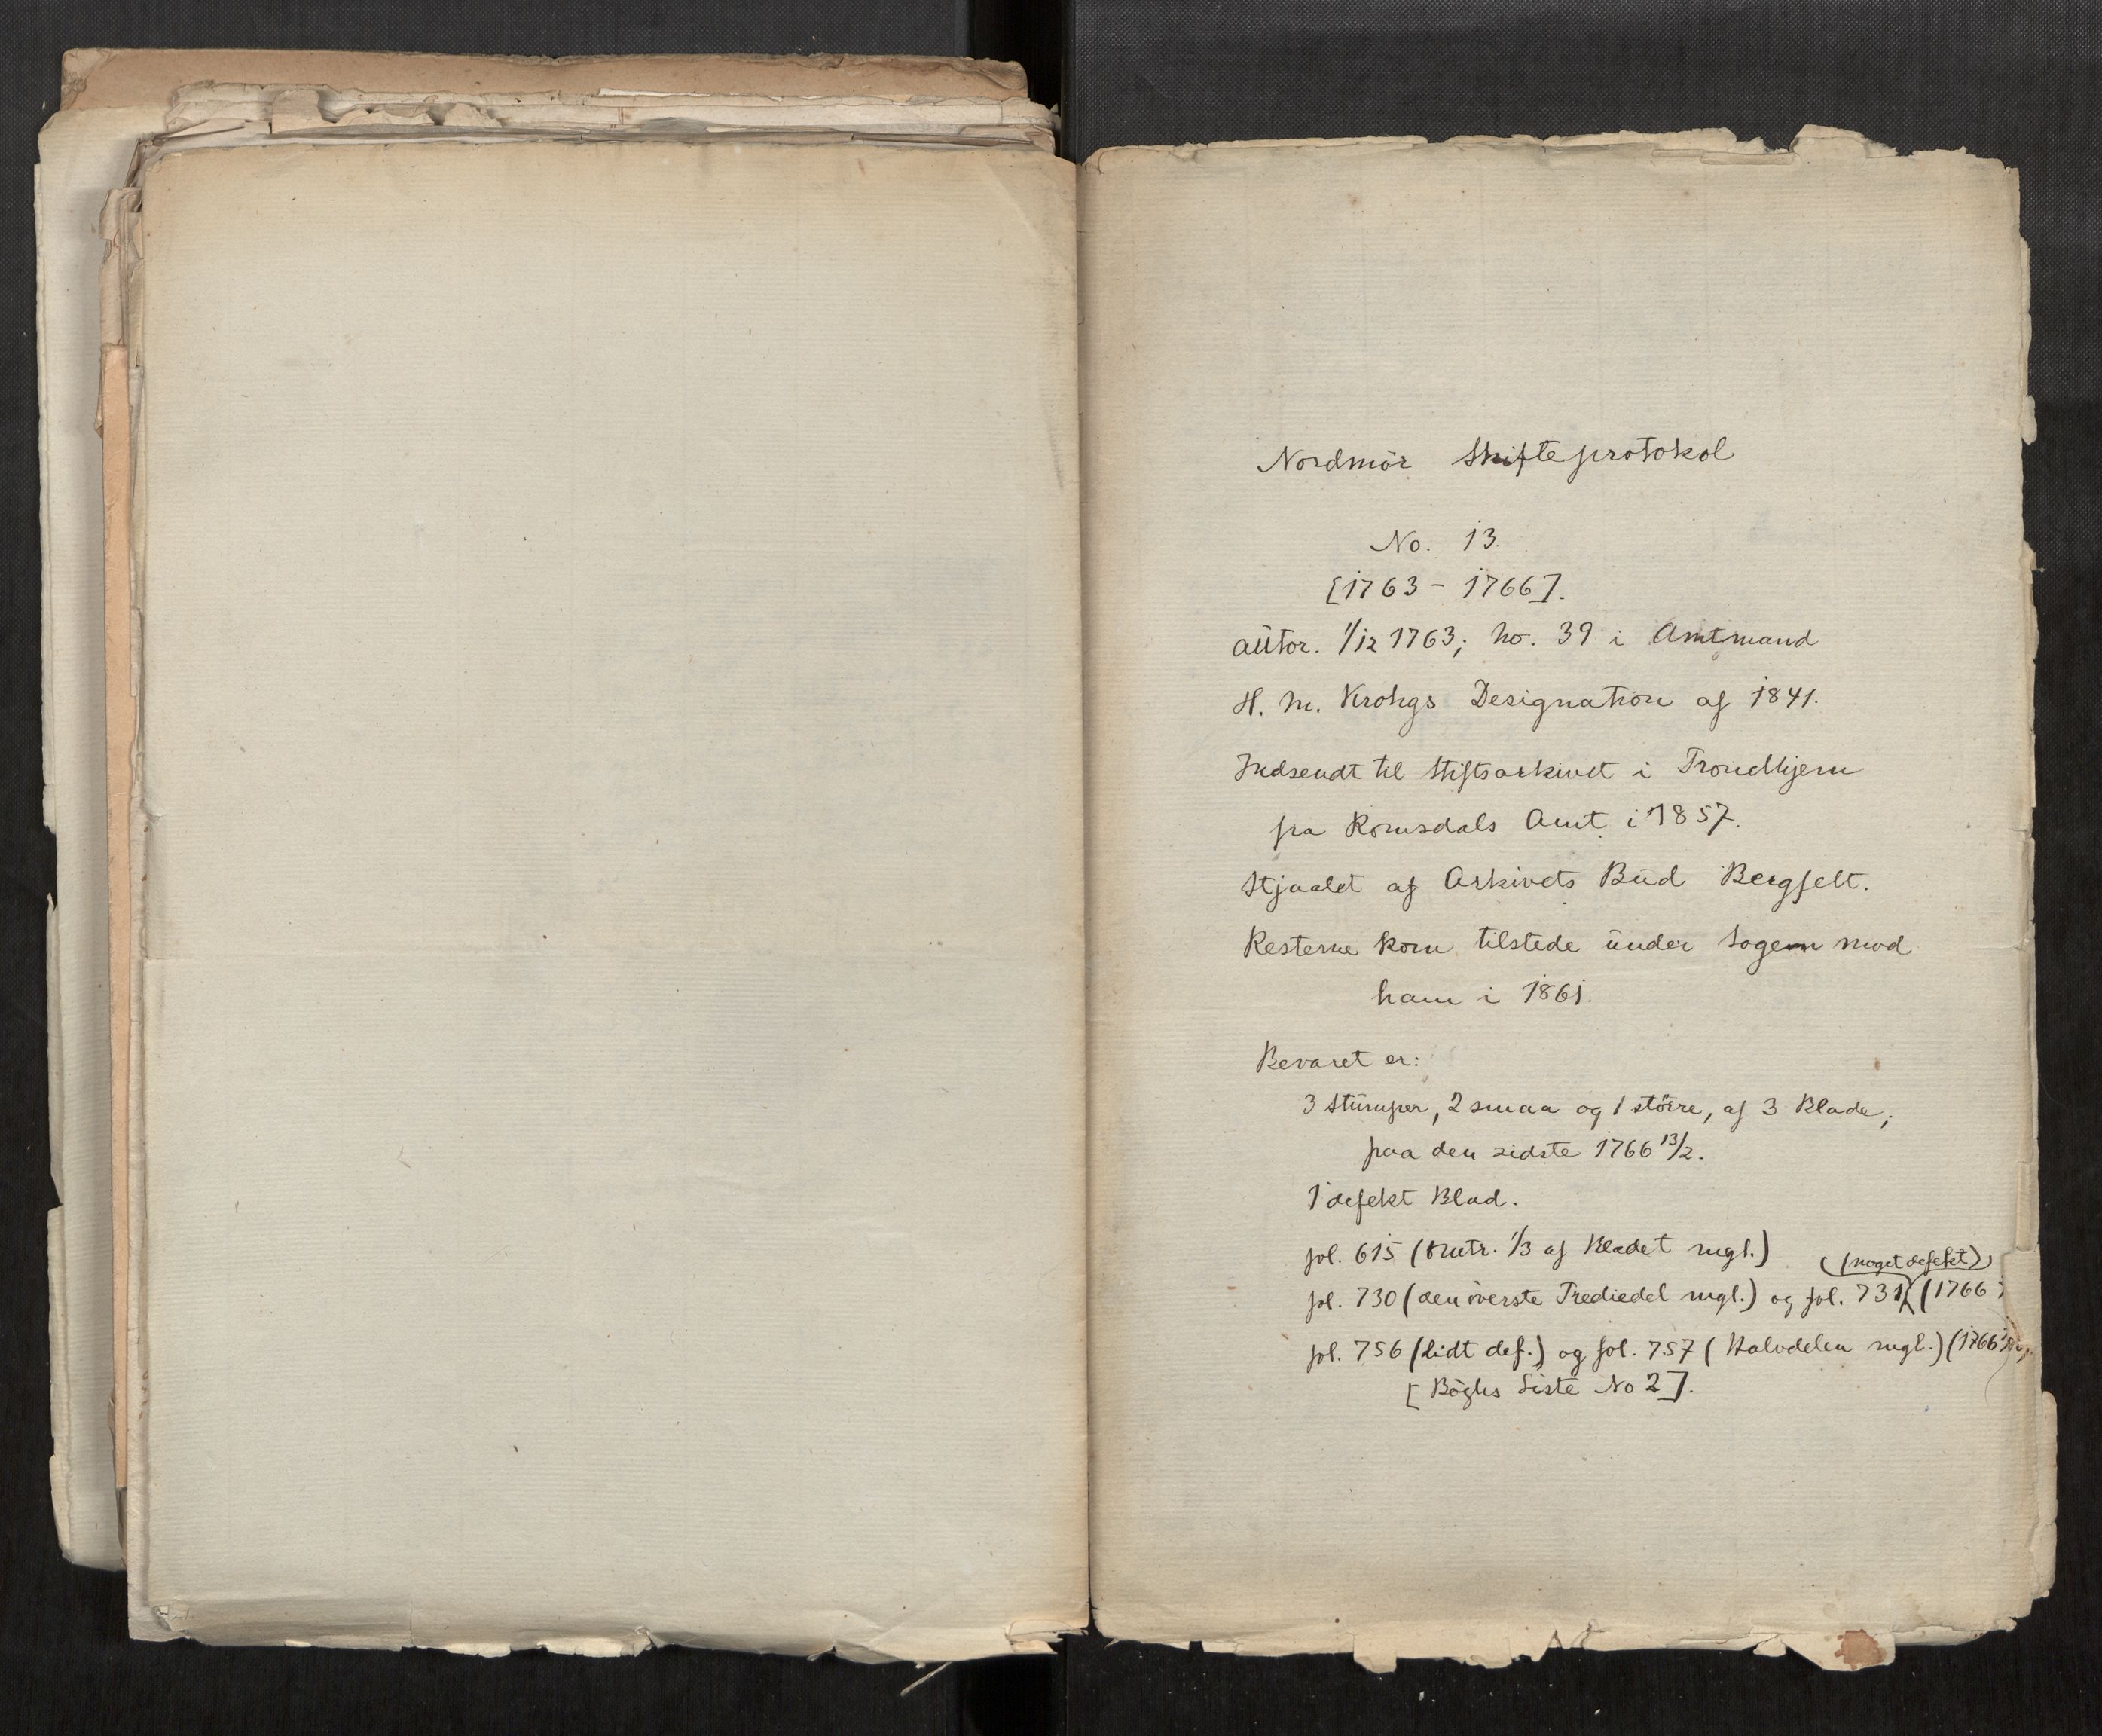 Nordmör Skifteprotokol
No. 13.
[1763 - 1766].
autor. 1/12 1763; no. 39 i Amtmand
H. M. Krohgs Designation af 1841.
Indsendt til Stiftsarkivet i Trondhjem
fra Romsdals Amt i 1857.
Stjaalet af Arkivets Bud Bergfelt.
Resterne kom tilstede under Sagen mod
ham i 1861.
Bevaret er:
3 Stumper, 2 smaa og 1 större, af 3 Blade;
paa den sidste 1766 13/2.
1 defekt Blad.
fol. 615 (omtr. 1/3 af Bladet mgl.)
(noget defekt)
fol. 730 (den överste Trediedel mgl.) og fol. 731 (1766
fol. 756 (lidt def.) og fol. 757 (Halvdelen mgl.) (1766
[Böghs Liste No 2].